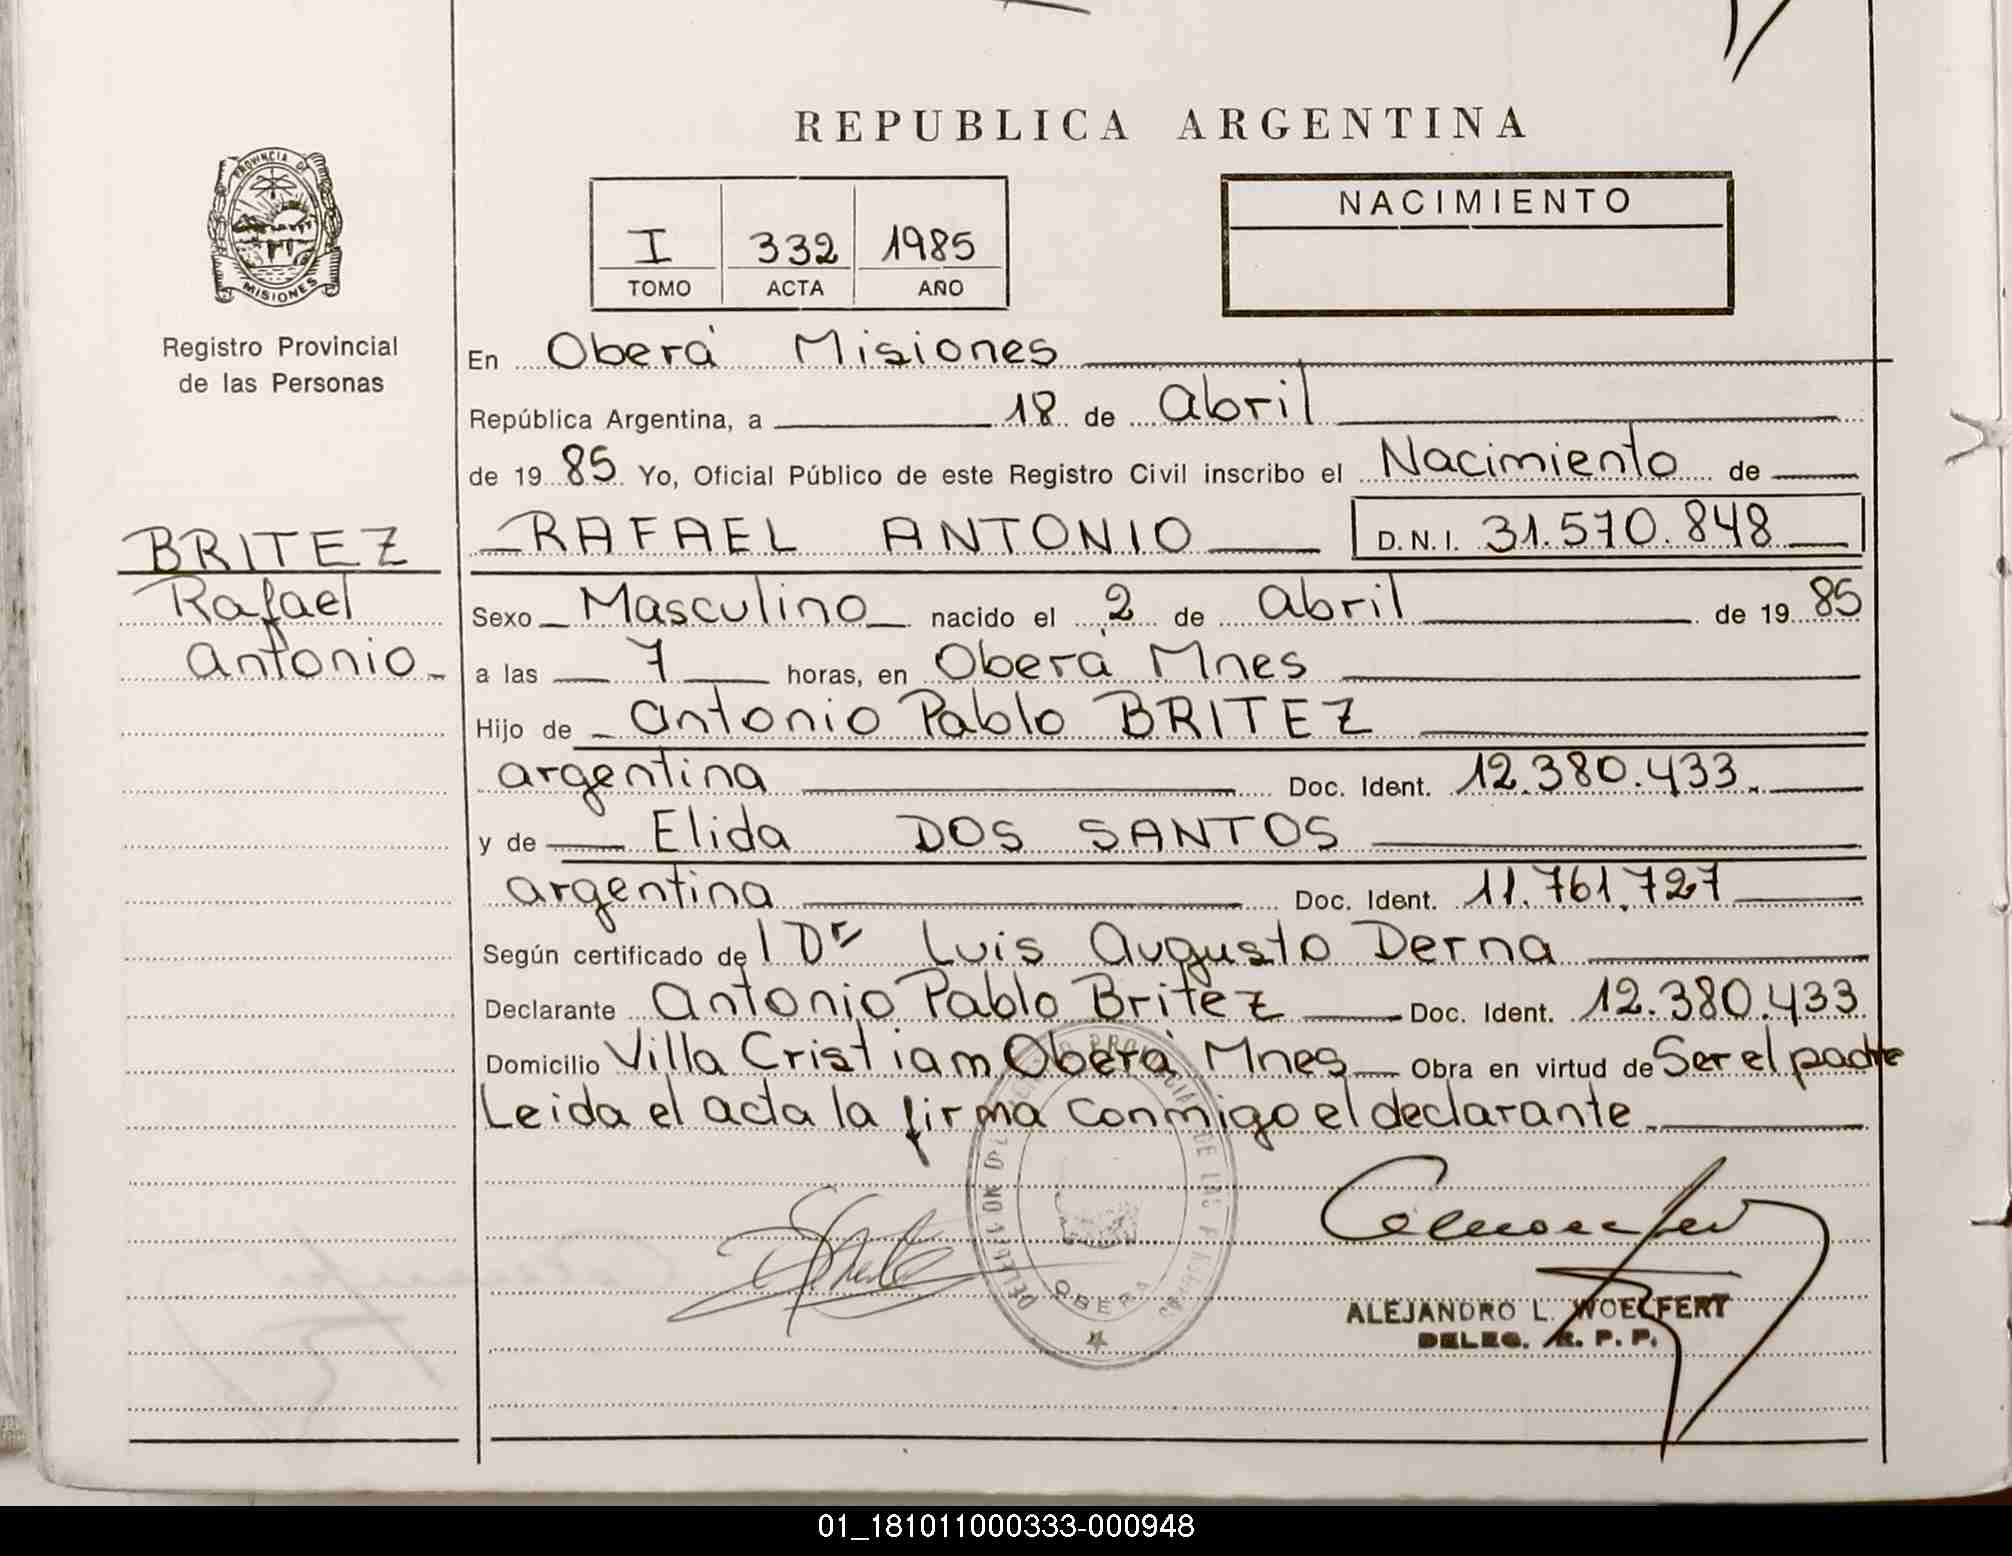 REPUBLICA ARGENTINA
PROVINCIA DE
MISIONES
Registro Provincial
de las Personas
I 332 1985
TOMO ACTA AÑO
NACIMIENTO
En Oberá Misiones
República Argentina, a 18 de Abril
de 1985 Yo, Oficial Público de este Registro Civil inscribo el Nacimiento de
BRITEZ
Rafael
Antonio
RAFAEL ANTONIO D.N.I. 31.570.848
Sexo Masculino nacido el 2 de Abril de 1985
a las 7 horas, en Oberá Mnes
Hijo de Antonio Pablo BRITEZ
argentina Doc. Ident. 12.380.433
y de Elida DOS SANTOS
argentina Doc. Ident. 11.761.727
Según certificado de Dr Luis Augusto Derna
Declarante Antonio Pablo Britez Doc. Ident. 12.380.433
Domicilio Villa Cristiam Oberá Mnes Obra en virtud de Ser el padre
Leida el acta la firma conmigo el declarante
OBERA
ALEJANDRO L. WOELFERT
DELEG. R. P. P.
01_181011000333-000948